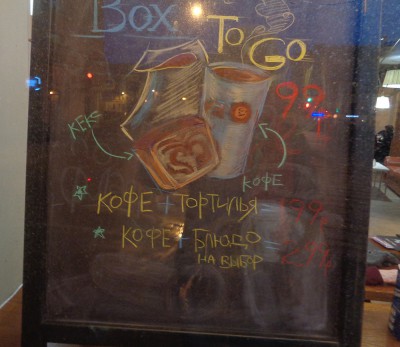 BOX
TO GO
КЕКС
КОФЕ
КОФЕ + ТОРТИЛЬЯ
КОФЕ + БЛЮДО
НА ВЫБОР